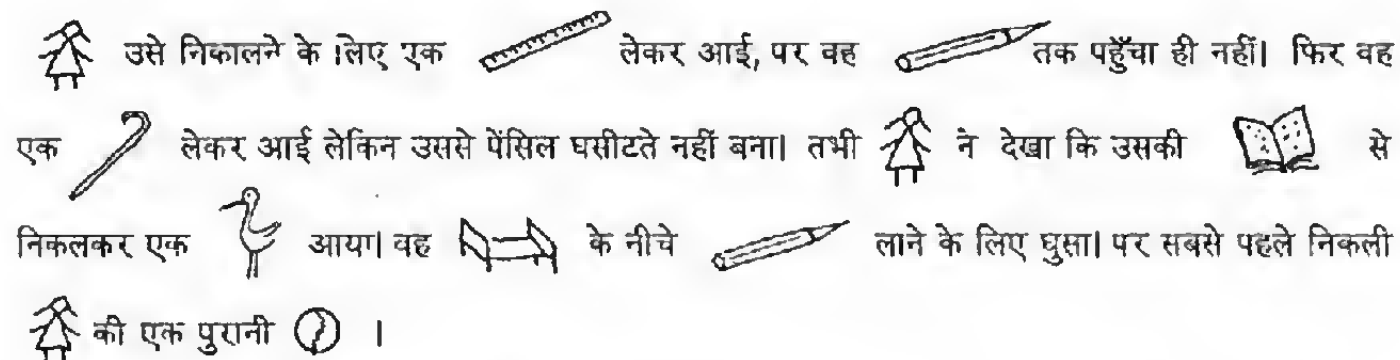 उसे निकालने के लिए एक लेकर आई, पर वह तक पहुँचा ही नहीं। फिर वह
एक लेकर आई लेकिन उससे पेंसिल घसीटते नहीं बना। तभी ने देखा कि उसकी से
निकलकर एक आया। वह के नीचे लाने के लिए घुसा। पर सबसे पहले निकली
की एक पुरानी ।